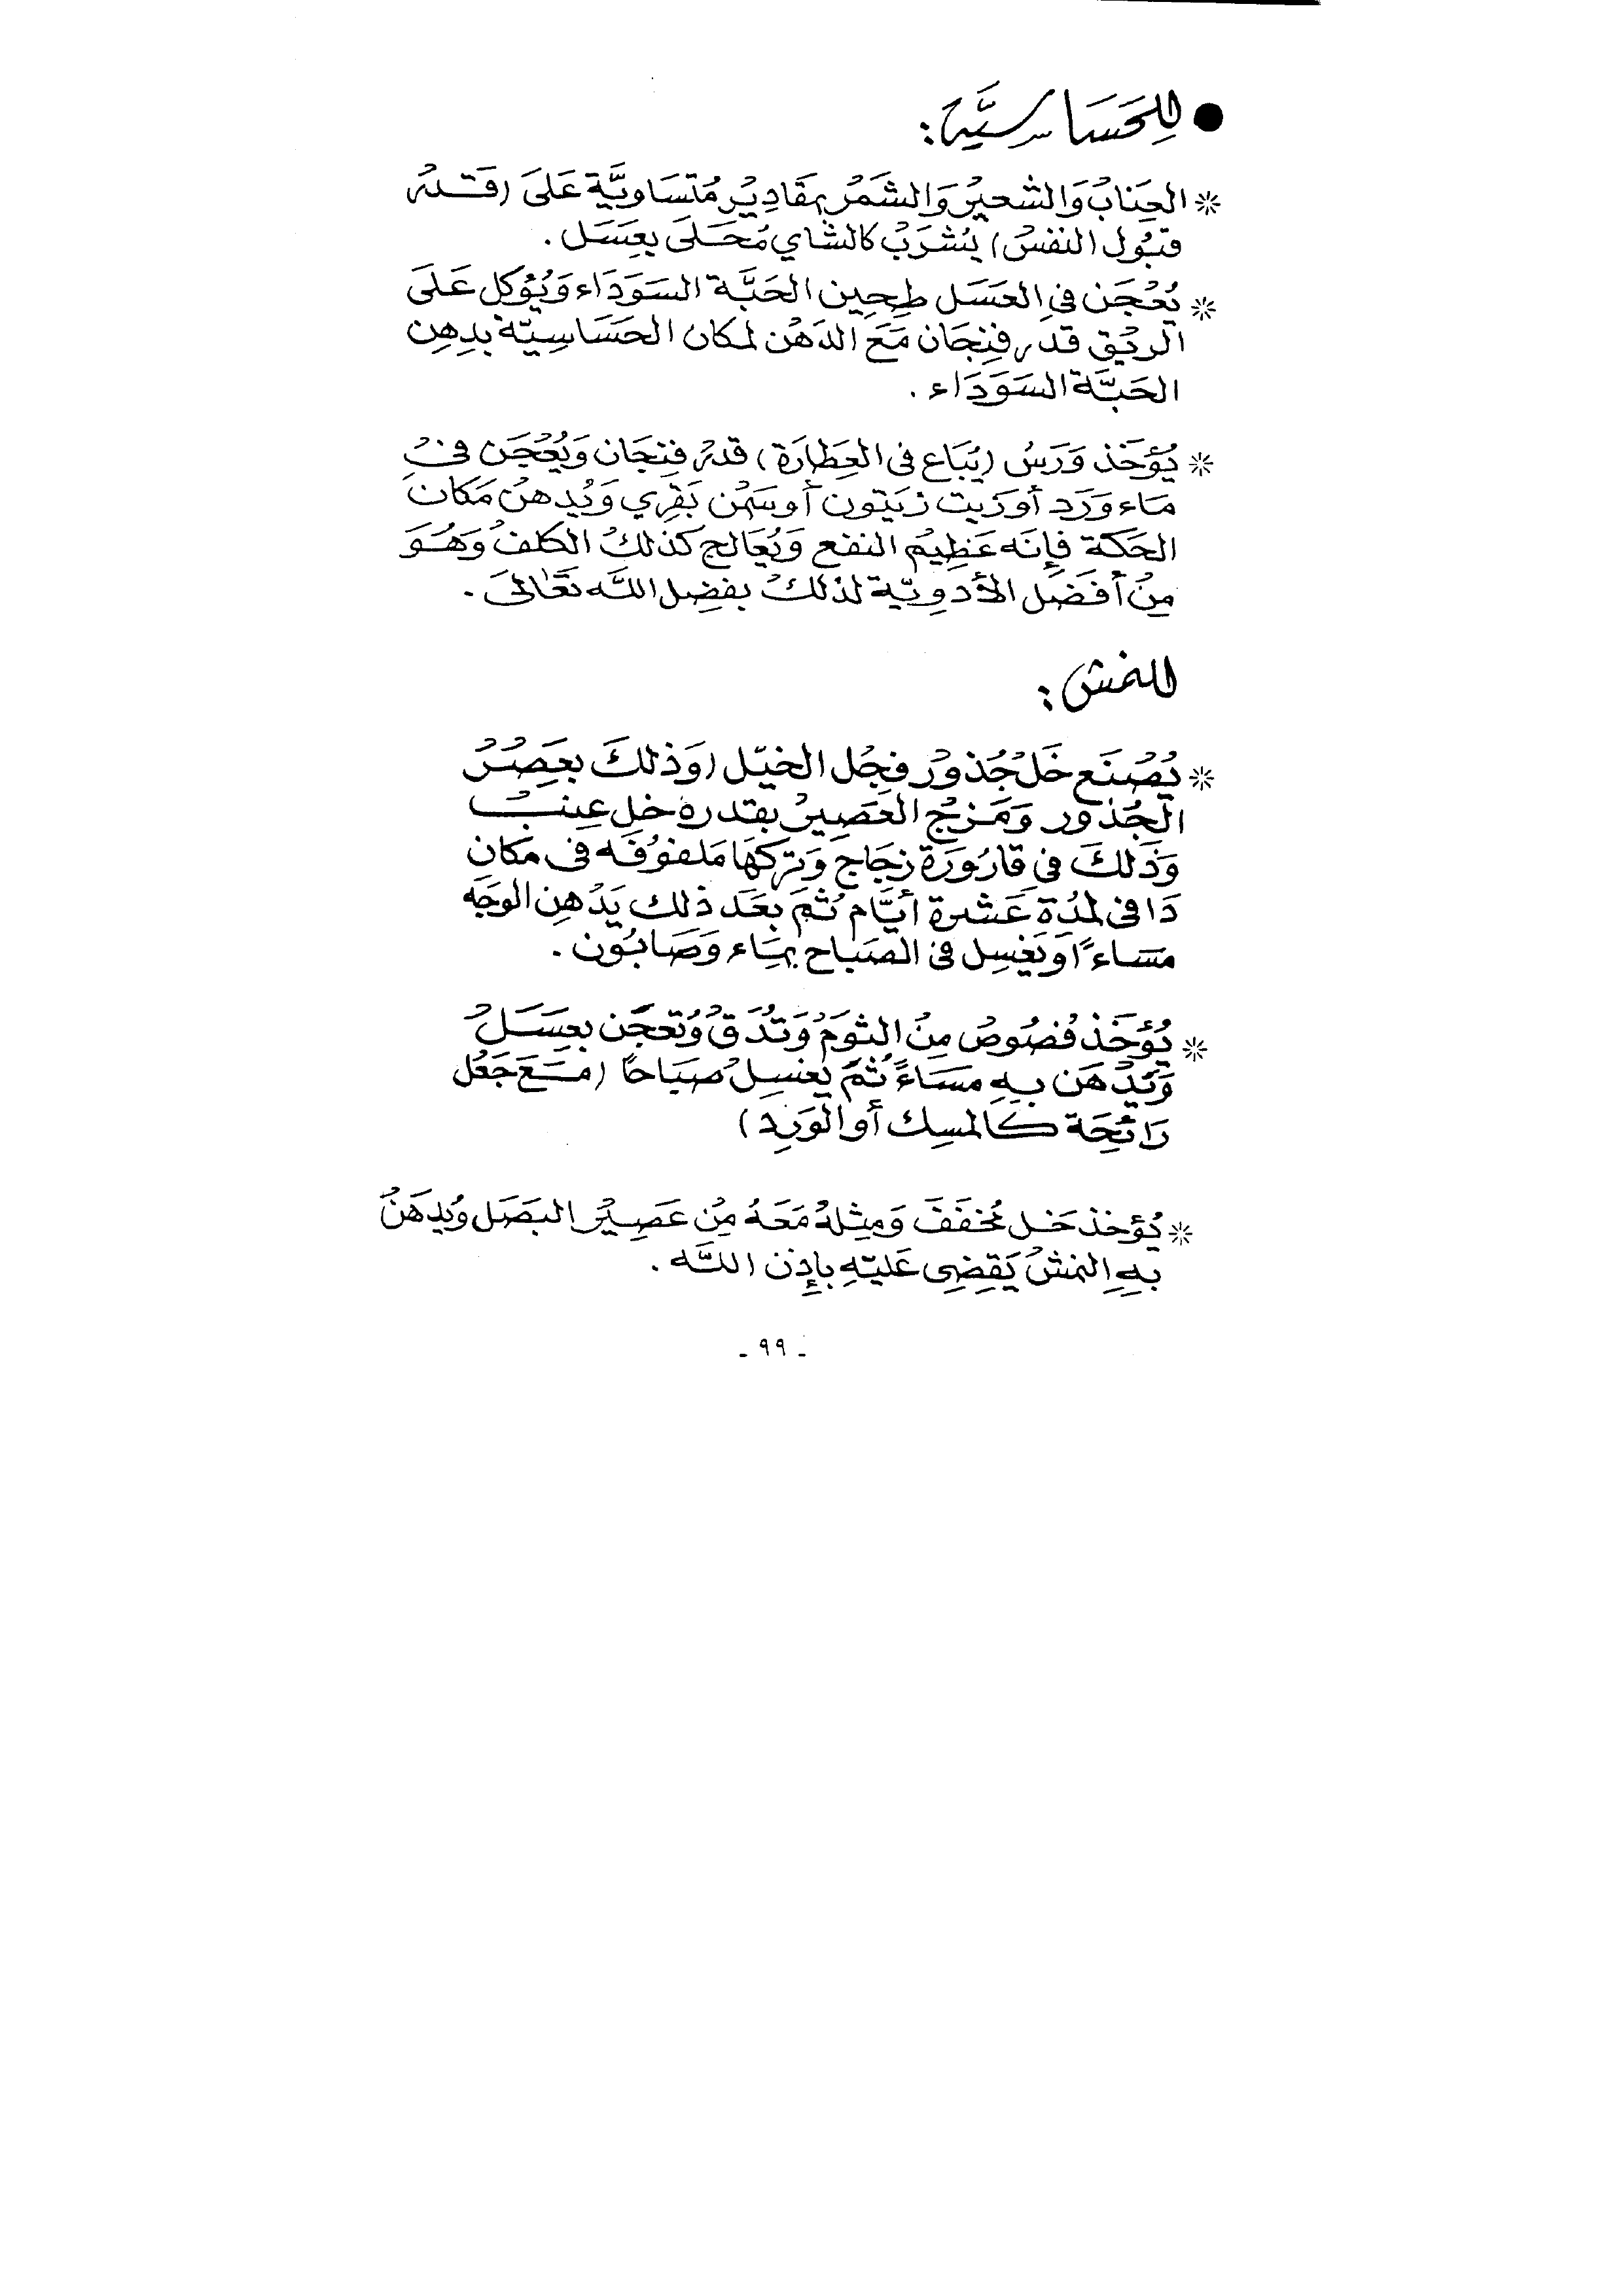 ● لِلحَسَاسِيَّة :
* العِنَابُ وَالشعيرُ وَالشَمَرُ بمَقَادِيُر مُتسَاويَّة عَلىَ (قَدرُ
قبُول النفسُ) يُشرَبُ كالشاي مُحَلىَ بعِسَل .
* يُعْجَن في العَسَل طحِين الحَبَّة السَودَاء وَيُؤكل عَلىَ
الريُق قدَر فِنجَان مَعَ الدَهُن لمكان الحَسَاسِيّة بدِهِن
الحَبَّة السَودَاء .
* يُؤخَذ وَرَسُ (يُبَاع فى العِطارَة) قدرُ فِنجَان وَيُعْجَن في
مَاء وَرَد أو زَيت زَيتون أو سَمُن بَقري وَيُدهنُ مَكان
الحَكة فإِنَه عَظِيمُ النفع وَيُعَالج كذلكُ الكلفُ وَهُوَ
مِنُ أفضَل الأدوِيّة لذلكُ بفضِل اللَّه تعَالىَ .
للنمش :
* يُصُنَع خَلُ جُذورُ فجُل الخيّل (وَذلكَ بعَصِرُ
الجُذور وَمَزجُ العَصِيرُ بقدره خل عِنبُ
وَذَلكَ في قارُورَة زجَاج وَتركهَا مَلفوُفَه فى مكان
دَافى لمُدَة عَشرة أيَّام ثُمَ بعَدَ ذلك يَدُهِن الوجَه
مسَاءً وَيَغسِل فى الصبَاح بمَاء وَصَابُون .
* يُؤخَذ فُصُوصُ مِنُ الثوَمُ وَتُدَق وُتعجَن بعِسَلُ
وَيَدُهَن بهِ مسَاءً ثُمَ يُغسِلُ صبَاحاً (مَعَ جَعُل
رَائحَة كالمسِك أو الوَرِد)
* يُؤخذ خَل مُخفَفَ وَمِثلهُ مَعَهُ مِنُ عَصِيُر البَصَل وَيُدهَنُ
بهِ النمشُ يَقضِى عَليّهِ بإِذن اللَّه .
- ٩٩ -